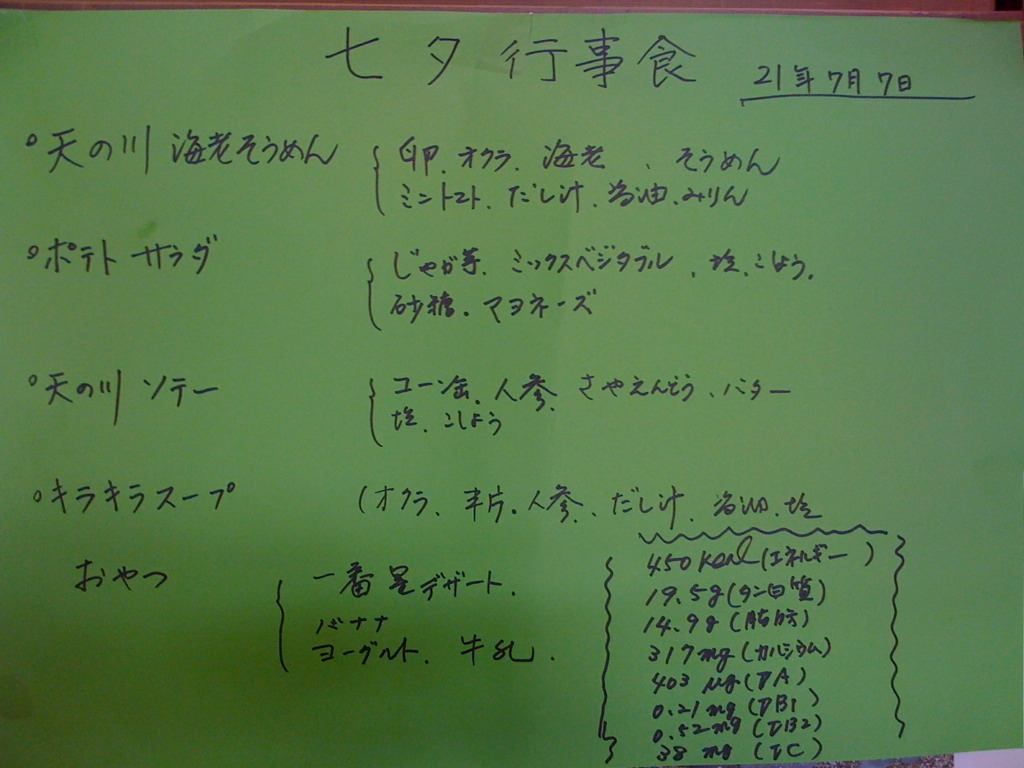 七夕行事食 21年7月7日
°天の川 海老そうめん
卵、オクラ、海老、そうめん
ミントマト、だし汁、醤油、みりん
°ポテトサラダ
じゃが芋、ミックスベジタブル、塩、こしょう、
砂糖、マヨネーズ
°天の川 ソテー
コーン缶、人参、さやえんどう、バター
塩、こしょう
°キラキラスープ
(オクラ、半片、人参、だし汁、醤油、塩
おやつ
一番星デザート、
バナナ
ヨーグルト、牛乳、
450 Kcal (エネルギー)
19.5g (タン白質)
14.9g (脂肪)
317mg (カルシウム)
403 μg (VA)
0.21 mg (VB1)
0.52 mg (VB2)
38 mg (VC)